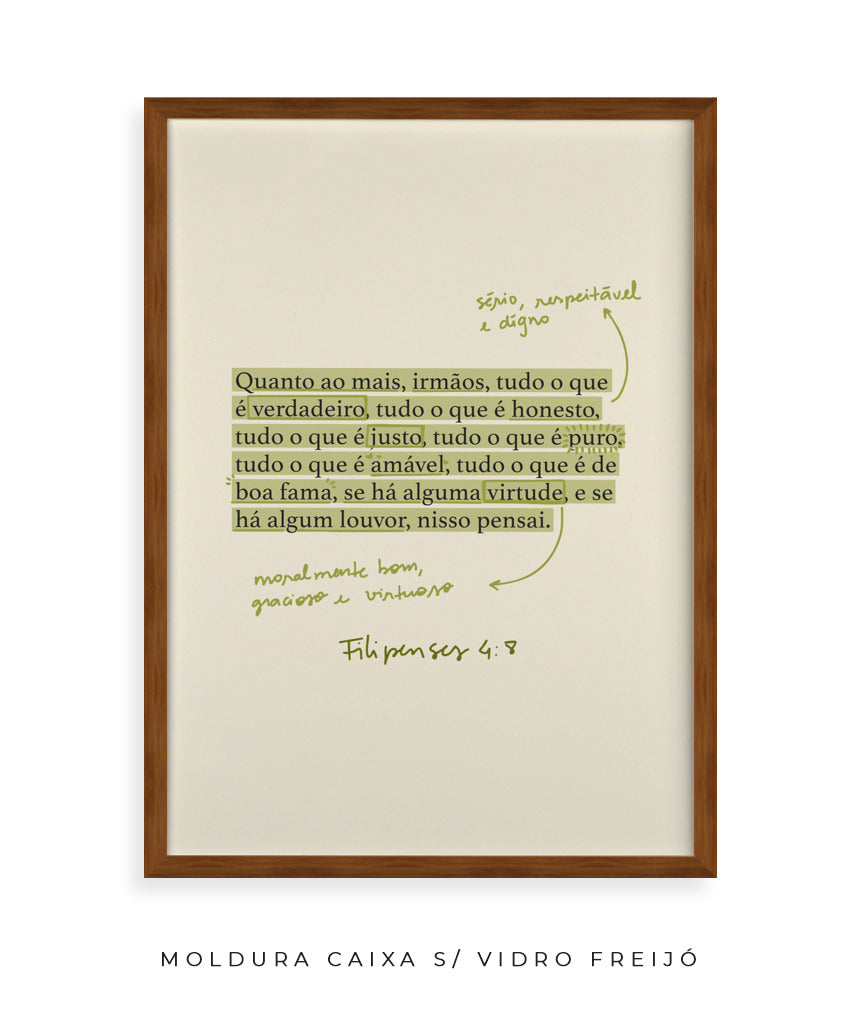 sério, respeitável
e digno
Quanto ao mais, irmãos, tudo o que
é verdadeiro, tudo o que é honesto,
tudo o que é justo, tudo o que é puro,
tudo o que é amável, tudo o que é de
boa fama, se há alguma virtude, e se
há algum louvor, nisso pensai.
moralmente bom,
gracioso e virtuoso
Filipenses 4:8
MOLDURA CAIXA S/ VIDRO FREIJÓ